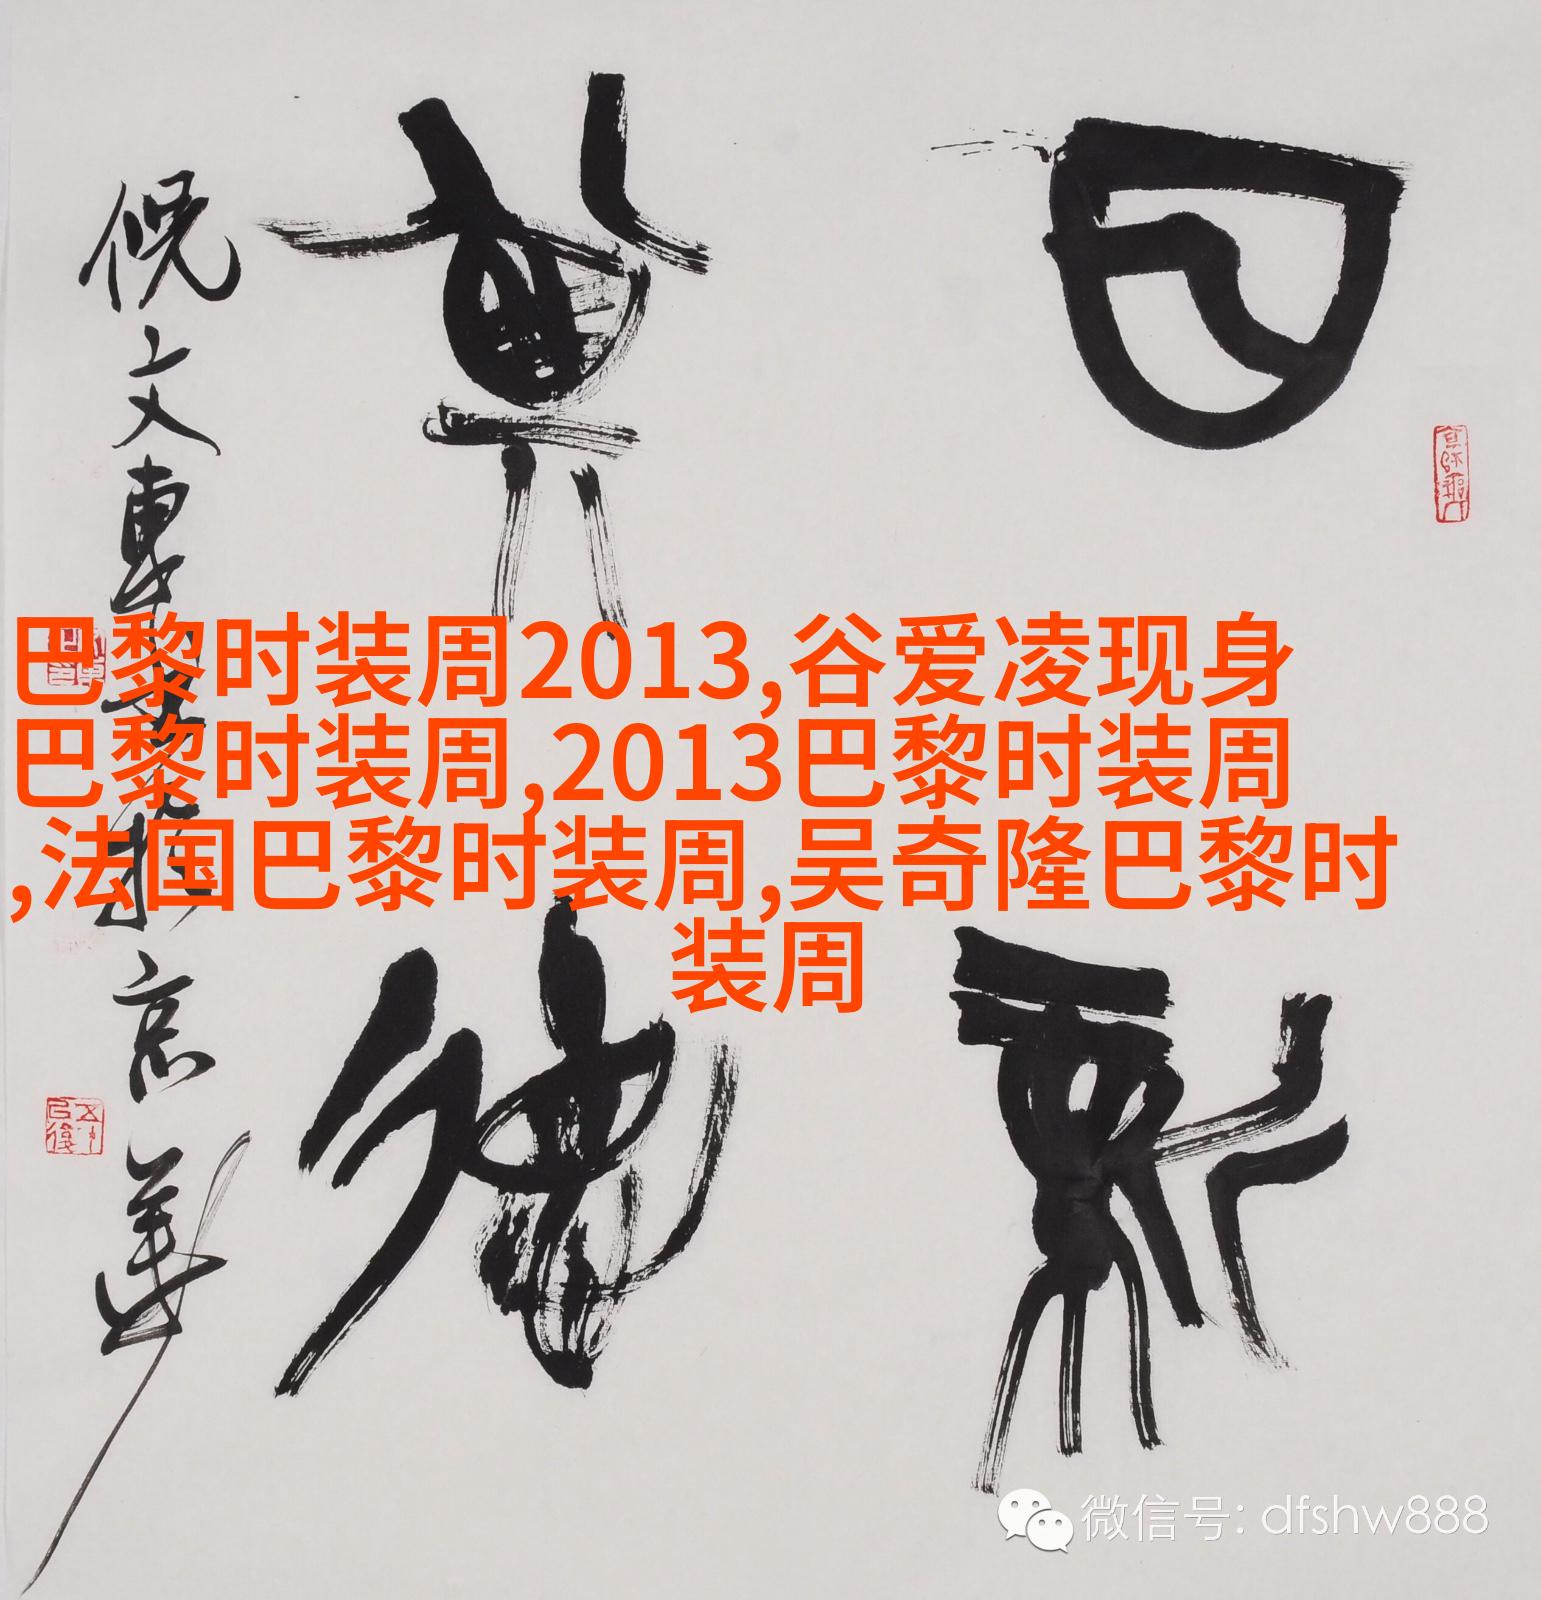 日新
其德
倪文東書於京華
巴黎时装周2013,谷爱凌现身
巴黎时装周,2013巴黎时装周
,法国巴黎时装周,吴奇隆巴黎时
装周
微信号: dfshw888